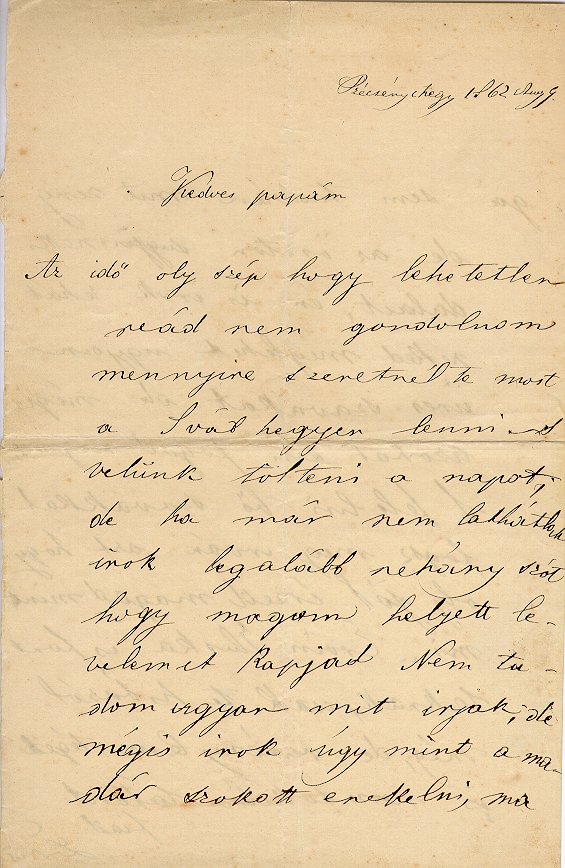 Szécsényihegy 1862 Aug 9.
Kedves papám
Az idő oly szép hogy lehetetlen
reád nem gondolnom
mennyire szeretnél te most
a Sváb hegyen lenni s
velünk tölteni a napot,
de ha már nem láthatlak
irok legalább néhány szót
hogy magam helyett le-
velemet kapjad Nem tu-
dom ugyan mit irjak, de
mégis irok úgy mint a ma-
dár szokott enekelni, ma